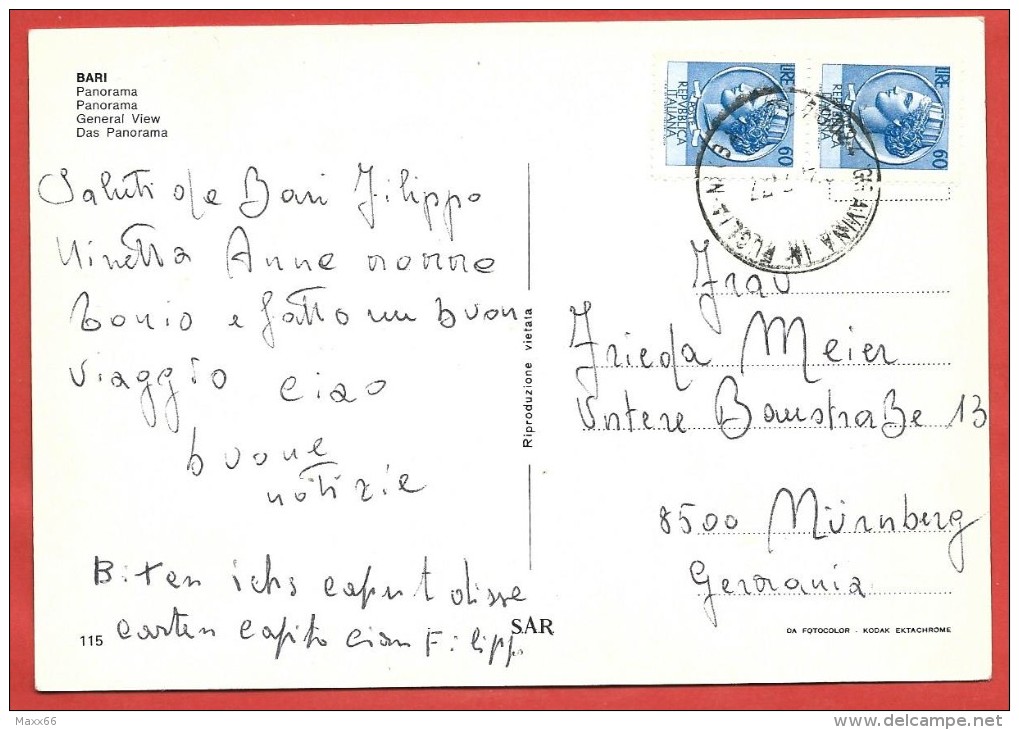 BARI
Panorama
Panorama
General View
Das Panorama
Saluti da Bari Filippo
Ninetta Anna nonna
Tonio e fatto un buon
viaggio ciao
buone
notizie
Biten ichs caput disse
carten capito ciau Filipp
115
SAR
Riproduzione vietata
LIRE
60
REPVBBLICA
ITALIANA
POSTE
LIRE
60
REPVBBLICA
ITALIANA
GRAVINA IN PUGLIA
Frau
Frieda Meier
Untere Baustraße 13
8500 Nürnberg
Germania
DA FOTOCOLOR - KODAK EKTACHROME
Maxx66
www.delcampe.net